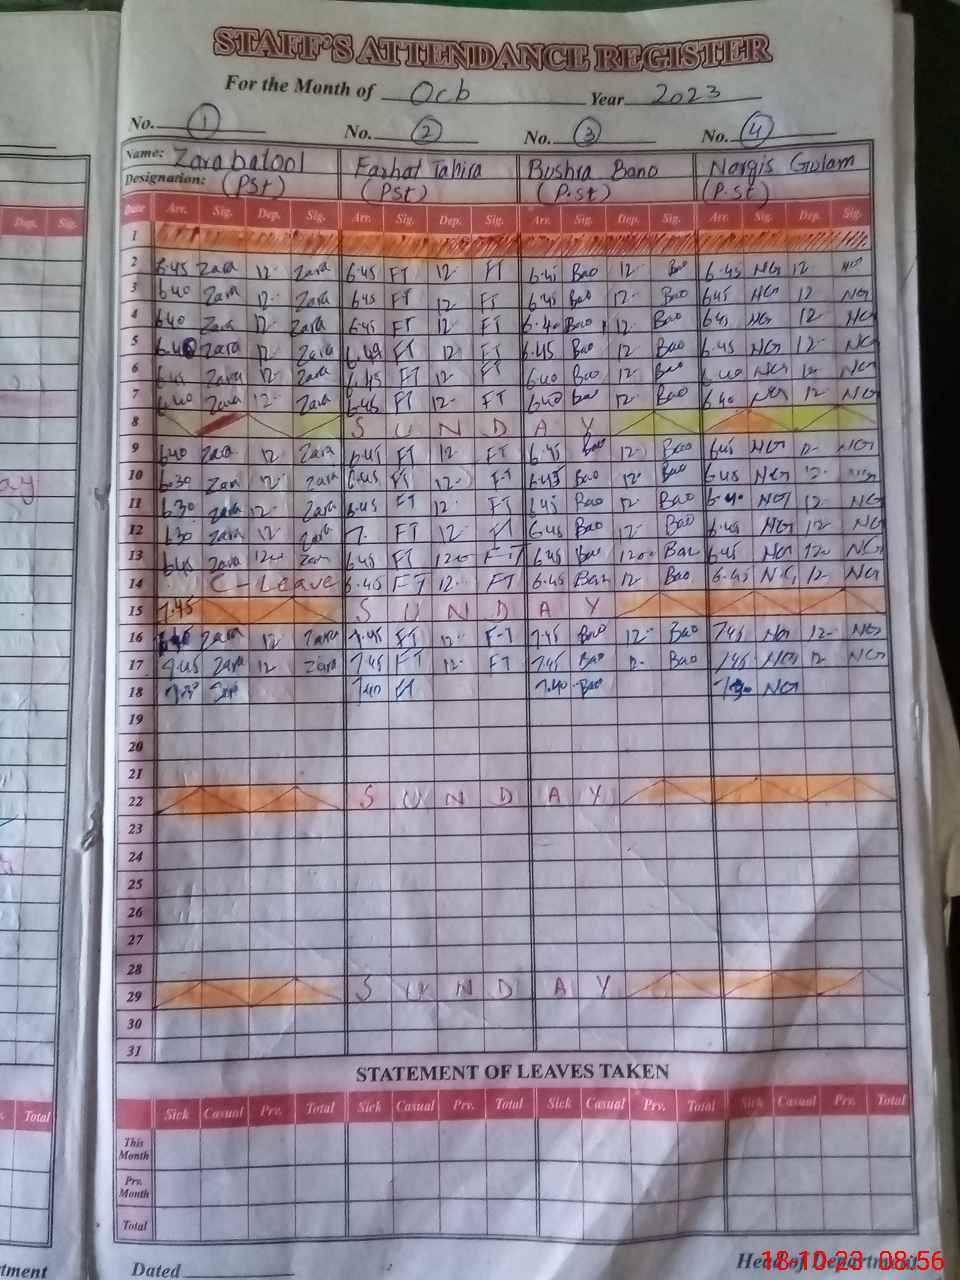 STAFF'S ATTENDANCE REGISTER
For the Month of Ocb Year 2023
No. 1 No. 2 No. 3 No. 4
Name: Zarabatool Farhat Tahira Bushra Bano Nargis Gulam
Designation: (PSt) (PSt) (P.st) (P.st)
Dep. Sig. Date Arr. Sig. Dep. Sig. Arr. Sig. Dep. Sig. Arr. Sig. Dep. Sig. Arr. Sig. Dep. Sig.
1
2 6.45 Zara 12 Zara 6.45 FT 12 FT 6.45 Bao 12 Bao 6.45 NG 12 NG
3 6.40 Zara 12 Zara 6.45 FT 12 FT 6.45 Bao 12 Bao 6.45 NG 12 NG
4 6.40 Zara 12 Zara 6.45 FT 12 FT 6.40 Bao 12 Bao 6.45 NG 12 NG
5 Zara 12 Zara FT 12 FT 6.45 Bao 12 Bao 6.45 NG 12 NG
6 6.45 Zara 12 Zara 6.45 FT 12 FT 6.40 Bao 12 Bao 6.40 NG 12 NG
7 6.40 Zara 12 Zara 6.45 FT 12 FT 6.40 Bao 12 Bao 6.40 NG 12 NG
8 S U N D A Y
9 6.40 Zara 12 Zara 6.45 FT 12 FT 6.45 Bao 12 Bao 6.45 NG 12 NG
10 6.30 Zara 12 Zara 6.45 FT 12 F.T 6.45 Bao 12 Bao 6.45 NG 12
11 6.30 Zara 12 Zara 6.45 FT 12 FT 6.45 Bao 12 Bao 6.40 NG 12 NG
12 6.30 Zara 12 Zara 7. FT 12 FT 6.45 Bao 12 Bao 6.45 NG 12 NG
13 6.45 Zara 12 Zara 6.45 FT 12 F-T 6.45 Bao 12 Bao 6.45 NG 12 NG
14 C-Leave 6.45 FT 12 FT 6.45 Bao 12 Bao 6.45 N.G 12 NG
15 7.45 S U N D A Y
16 Zara 12 Zara 7.45 FT 12 F-T 7.45 Bao 12 Bao 7.45 NG 12 NG
17 7.45 Zara 12 Zara 7.45 FT 12 FT 7.45 Bao 12 Bao 7.45 NG 12 NG
18 7.40 FT 7.40 Bao NG
19
20
21
22 S U N D A Y
23
24
25
26
27
28
29 S U N D A Y
30
31
STATEMENT OF LEAVES TAKEN
Total Sick Casual Prv. Total Sick Casual Prv. Total Sick Casual Prv. Total Sick Casual Prv. Total
This Month
Prv. Month
Total
Dated Head of Department
18-10-23 08:56